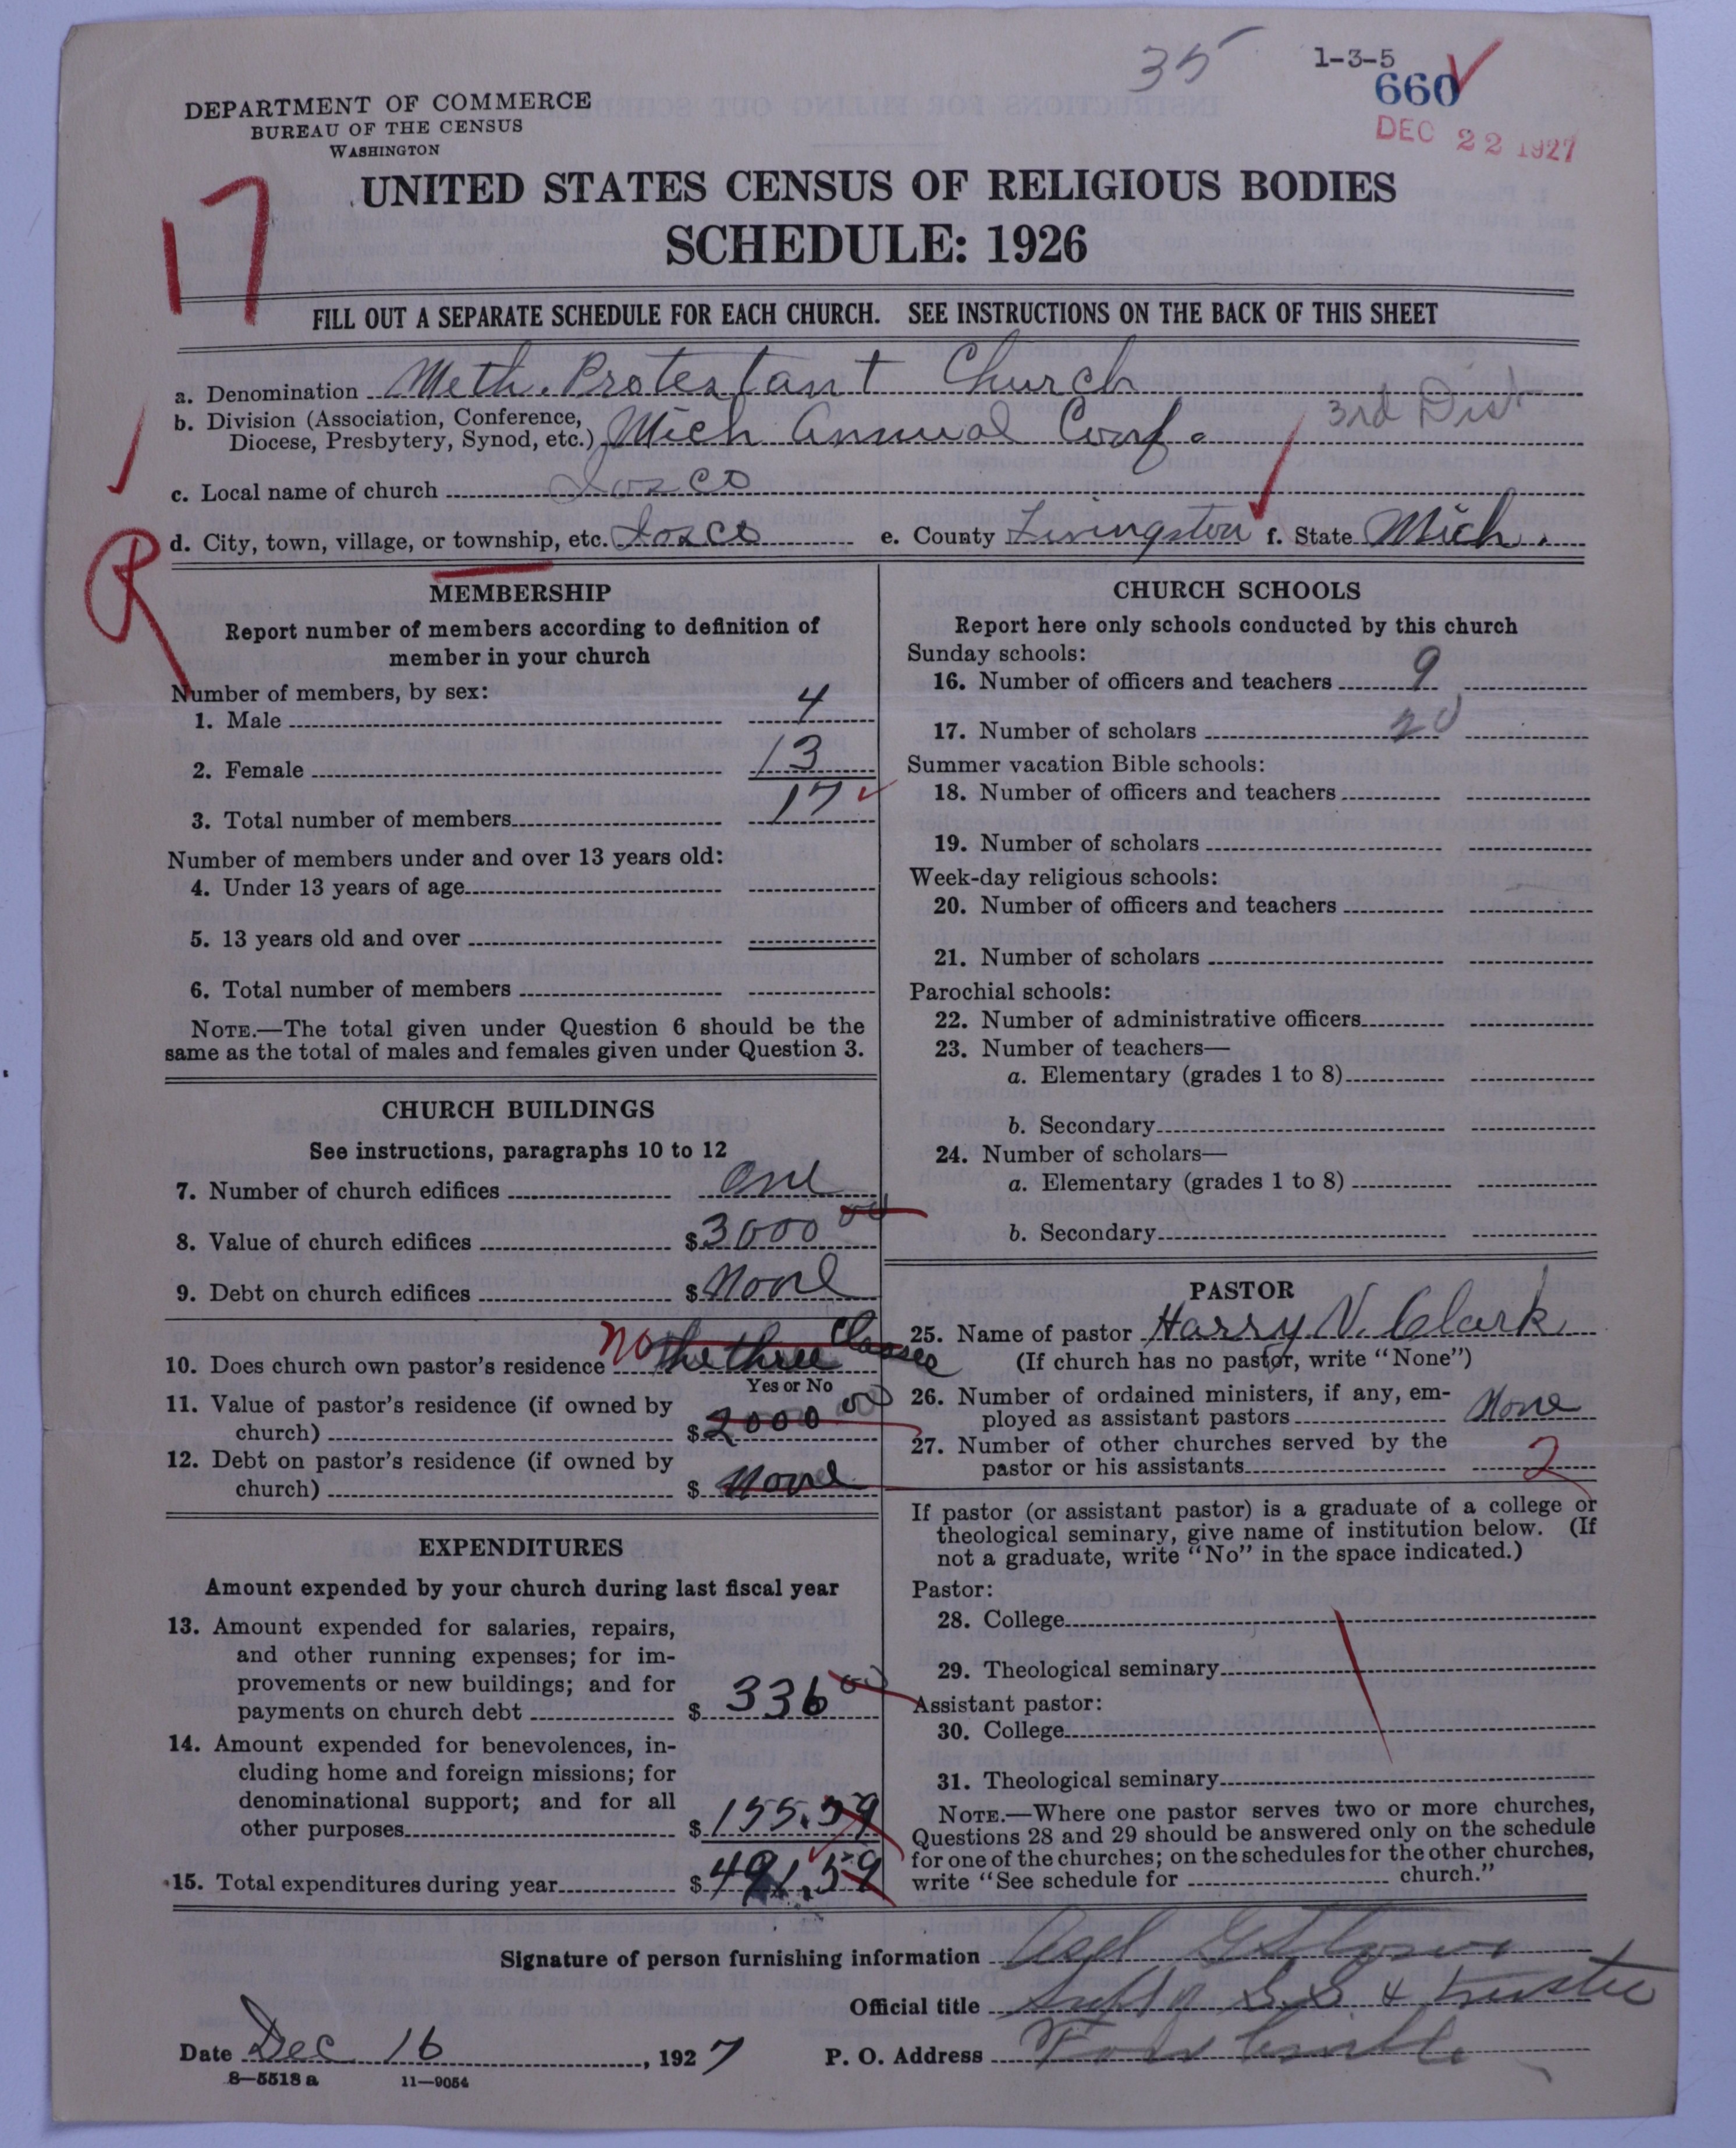 35
1-3-5
660
DEC 22 1927
DEPARTMENT OF COMMERCE
BUREAU OF THE CENSUS
WASHINGTON
17
UNITED STATES CENSUS OF RELIGIOUS BODIES
SCHEDULE: 1926
FILL OUT A SEPARATE SCHEDULE FOR EACH CHURCH. SEE INSTRUCTIONS ON THE BACK OF THIS SHEET
a. Denomination Meth. Protestant Church
b. Division (Association, Conference,
Diocese, Presbytery, Synod, etc.) Mich Annual Conf. 3rd Dist
c. Local name of church Iosco
d. City, town, village, or township, etc. Iosco e. County Livingston f. State Mich.
R
MEMBERSHIP
Report number of members according to definition of
member in your church
Number of members, by sex:
1. Male 4
2. Female 13
3. Total number of members 17
Number of members under and over 13 years old:
4. Under 13 years of age
5. 13 years old and over
6. Total number of members
NOTE.—The total given under Question 6 should be the
same as the total of males and females given under Question 3.
CHURCH BUILDINGS
See instructions, paragraphs 10 to 12
7. Number of church edifices One
8. Value of church edifices $3000 00
9. Debt on church edifices $None
10. Does church own pastor's residence No the three Classes
Yes or No
11. Value of pastor's residence (if owned by
church) $2000 00
12. Debt on pastor's residence (if owned by
church) $ None
EXPENDITURES
Amount expended by your church during last fiscal year
13. Amount expended for salaries, repairs,
and other running expenses; for im-
provements or new buildings; and for
payments on church debt $ 336 00
14. Amount expended for benevolences, in-
cluding home and foreign missions; for
denominational support; and for all
other purposes $155.59
15. Total expenditures during year $491.59
CHURCH SCHOOLS
Report here only schools conducted by this church
Sunday schools:
16. Number of officers and teachers 9
17. Number of scholars 20
Summer vacation Bible schools:
18. Number of officers and teachers
19. Number of scholars
Week-day religious schools:
20. Number of officers and teachers
21. Number of scholars
Parochial schools:
22. Number of administrative officers
23. Number of teachers—
a. Elementary (grades 1 to 8)
b. Secondary
24. Number of scholars—
a. Elementary (grades 1 to 8)
b. Secondary
PASTOR
25. Name of pastor Harry N. Clark
(If church has no pastor, write "None")
26. Number of ordained ministers, if any, em-
ployed as assistant pastors None
27. Number of other churches served by the
pastor or his assistants 2
If pastor (or assistant pastor) is a graduate of a college or
theological seminary, give name of institution below. (If
not a graduate, write "No" in the space indicated.)
Pastor:
28. College
29. Theological seminary
Assistant pastor:
30. College
31. Theological seminary
NOTE.—Where one pastor serves two or more churches,
Questions 28 and 29 should be answered only on the schedule
for one of the churches; on the schedules for the other churches,
write "See schedule for church."
Signature of person furnishing information
Official title Supt of S.S. & Trustee
Date Dec 16, 1927 P. O. Address Fowlerville
8—5518 a 11—9054